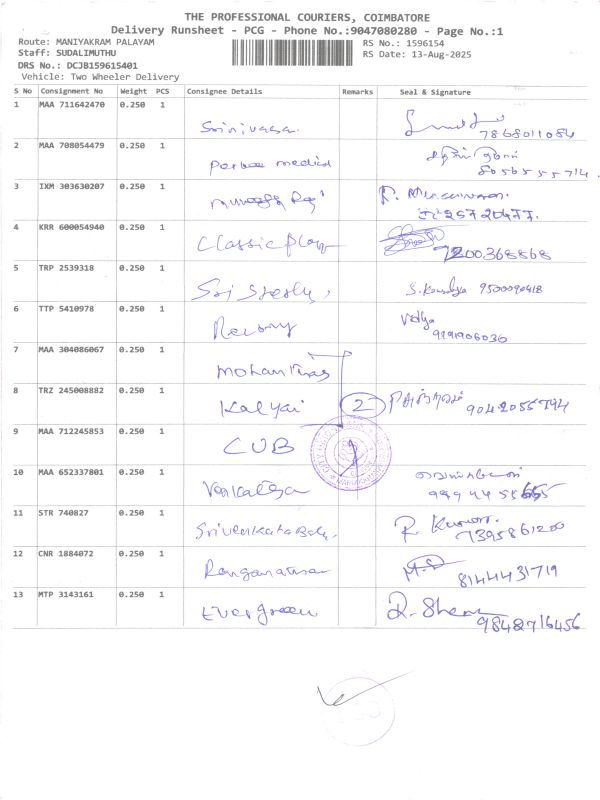 THE PROFESSIONAL COURIERS, COIMBATORE
Delivery Runsheet - PCG - Phone No.:9047080280 - Page No.:1
Route: MANIYAKRAM PALAYAM
RS No.: 1596154
Staff: SUDALIMUTHU
RS Date: 13-Aug-2025
DRS No.: DCJB159615401
Vehicle: Two Wheeler Delivery
S No Consignment No Weight PCS Consignee Details Remarks Seal & Signature
1 MAA 711642470 0.250 1 Srinivasa 7868011084
2 MAA 708054479 0.250 1 medical 8056555714
3 IXM 303630207 0.250 1
4 KRR 600054940 0.250 1 Classic Play 7200368868
5 TRP 2539318 0.250 1 Sri 9500090418
6 TTP 5410978 0.250 1 Vidya
9191906030
7 MAA 304086067 0.250 1 Mohan
8 TRZ 245008882 0.250 1 Kalyai 2 9042055794
9 MAA 712245853 0.250 1 CUB
10 MAA 652337801 0.250 1 Venkatesa
11 STR 740827 0.250 1 R. Kumar.
7395861200
12 CNR 1884072 0.250 1 Ranganathan M.S
8144431719
13 MTP 3143161 0.250 1 Evergreen R. 9842716456